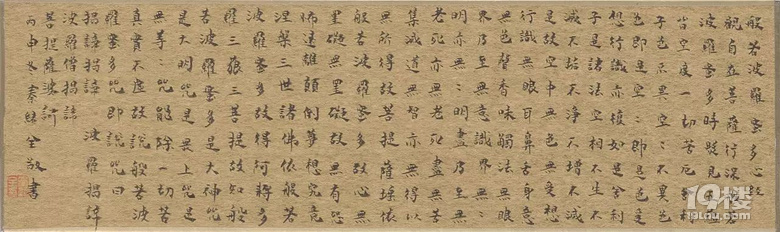 般若波羅蜜多心經
觀自在菩薩行深般若
波羅蜜多時照見五蘊
皆空度一切苦厄舍利
子色不異空〻不異色
色即是空〻即是色受
想行識亦復如是舍利
子是諸法空相不生不
滅不垢不淨不增不減
是故空中無色無受想
行識無眼耳鼻舌身意
無色聲香味觸法無眼
界乃至無意識界無〻
明亦無〻明盡乃至無
老死亦無老死盡無苦
集滅道無智亦無得以
無所得故菩提薩埵依
般若波羅蜜多故心無
罣礙無罣礙故無有恐
怖遠離顛倒夢想究竟
涅槃三世諸佛依般若
波羅蜜多故得阿耨多
羅三藐三菩提故知般
若波羅蜜多是大神咒
是大明咒是無上咒是
無等〻咒能除一切苦
真實不虛故說般若波
羅蜜多咒即說咒曰
揭諦揭諦 波羅揭諦
波羅僧揭諦
菩提薩婆訶
丙申冬秦敬書
19楼
19lou.com